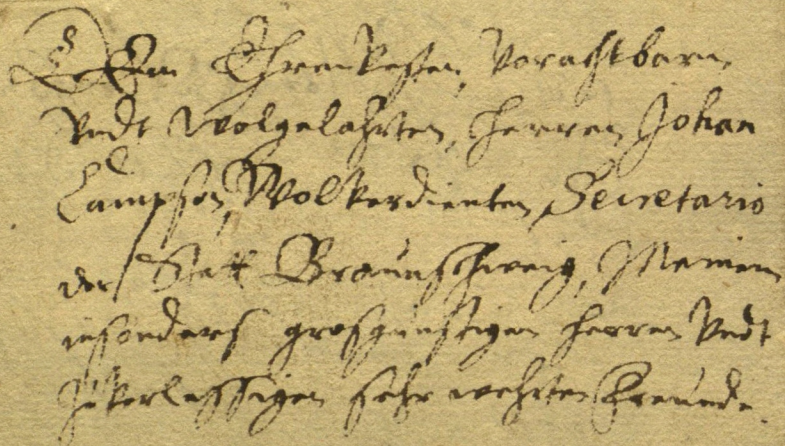 Dem Ehrenvesten, Vorachtbarn
Vndt Wolgelahrten, Herren Johan
Campson, Wolverdienten Secretario
der Statt Braunschweig, Meinem
insonders grosgünstigen Herren Vndt
zuverlessigen sehr wehrten Freunde.